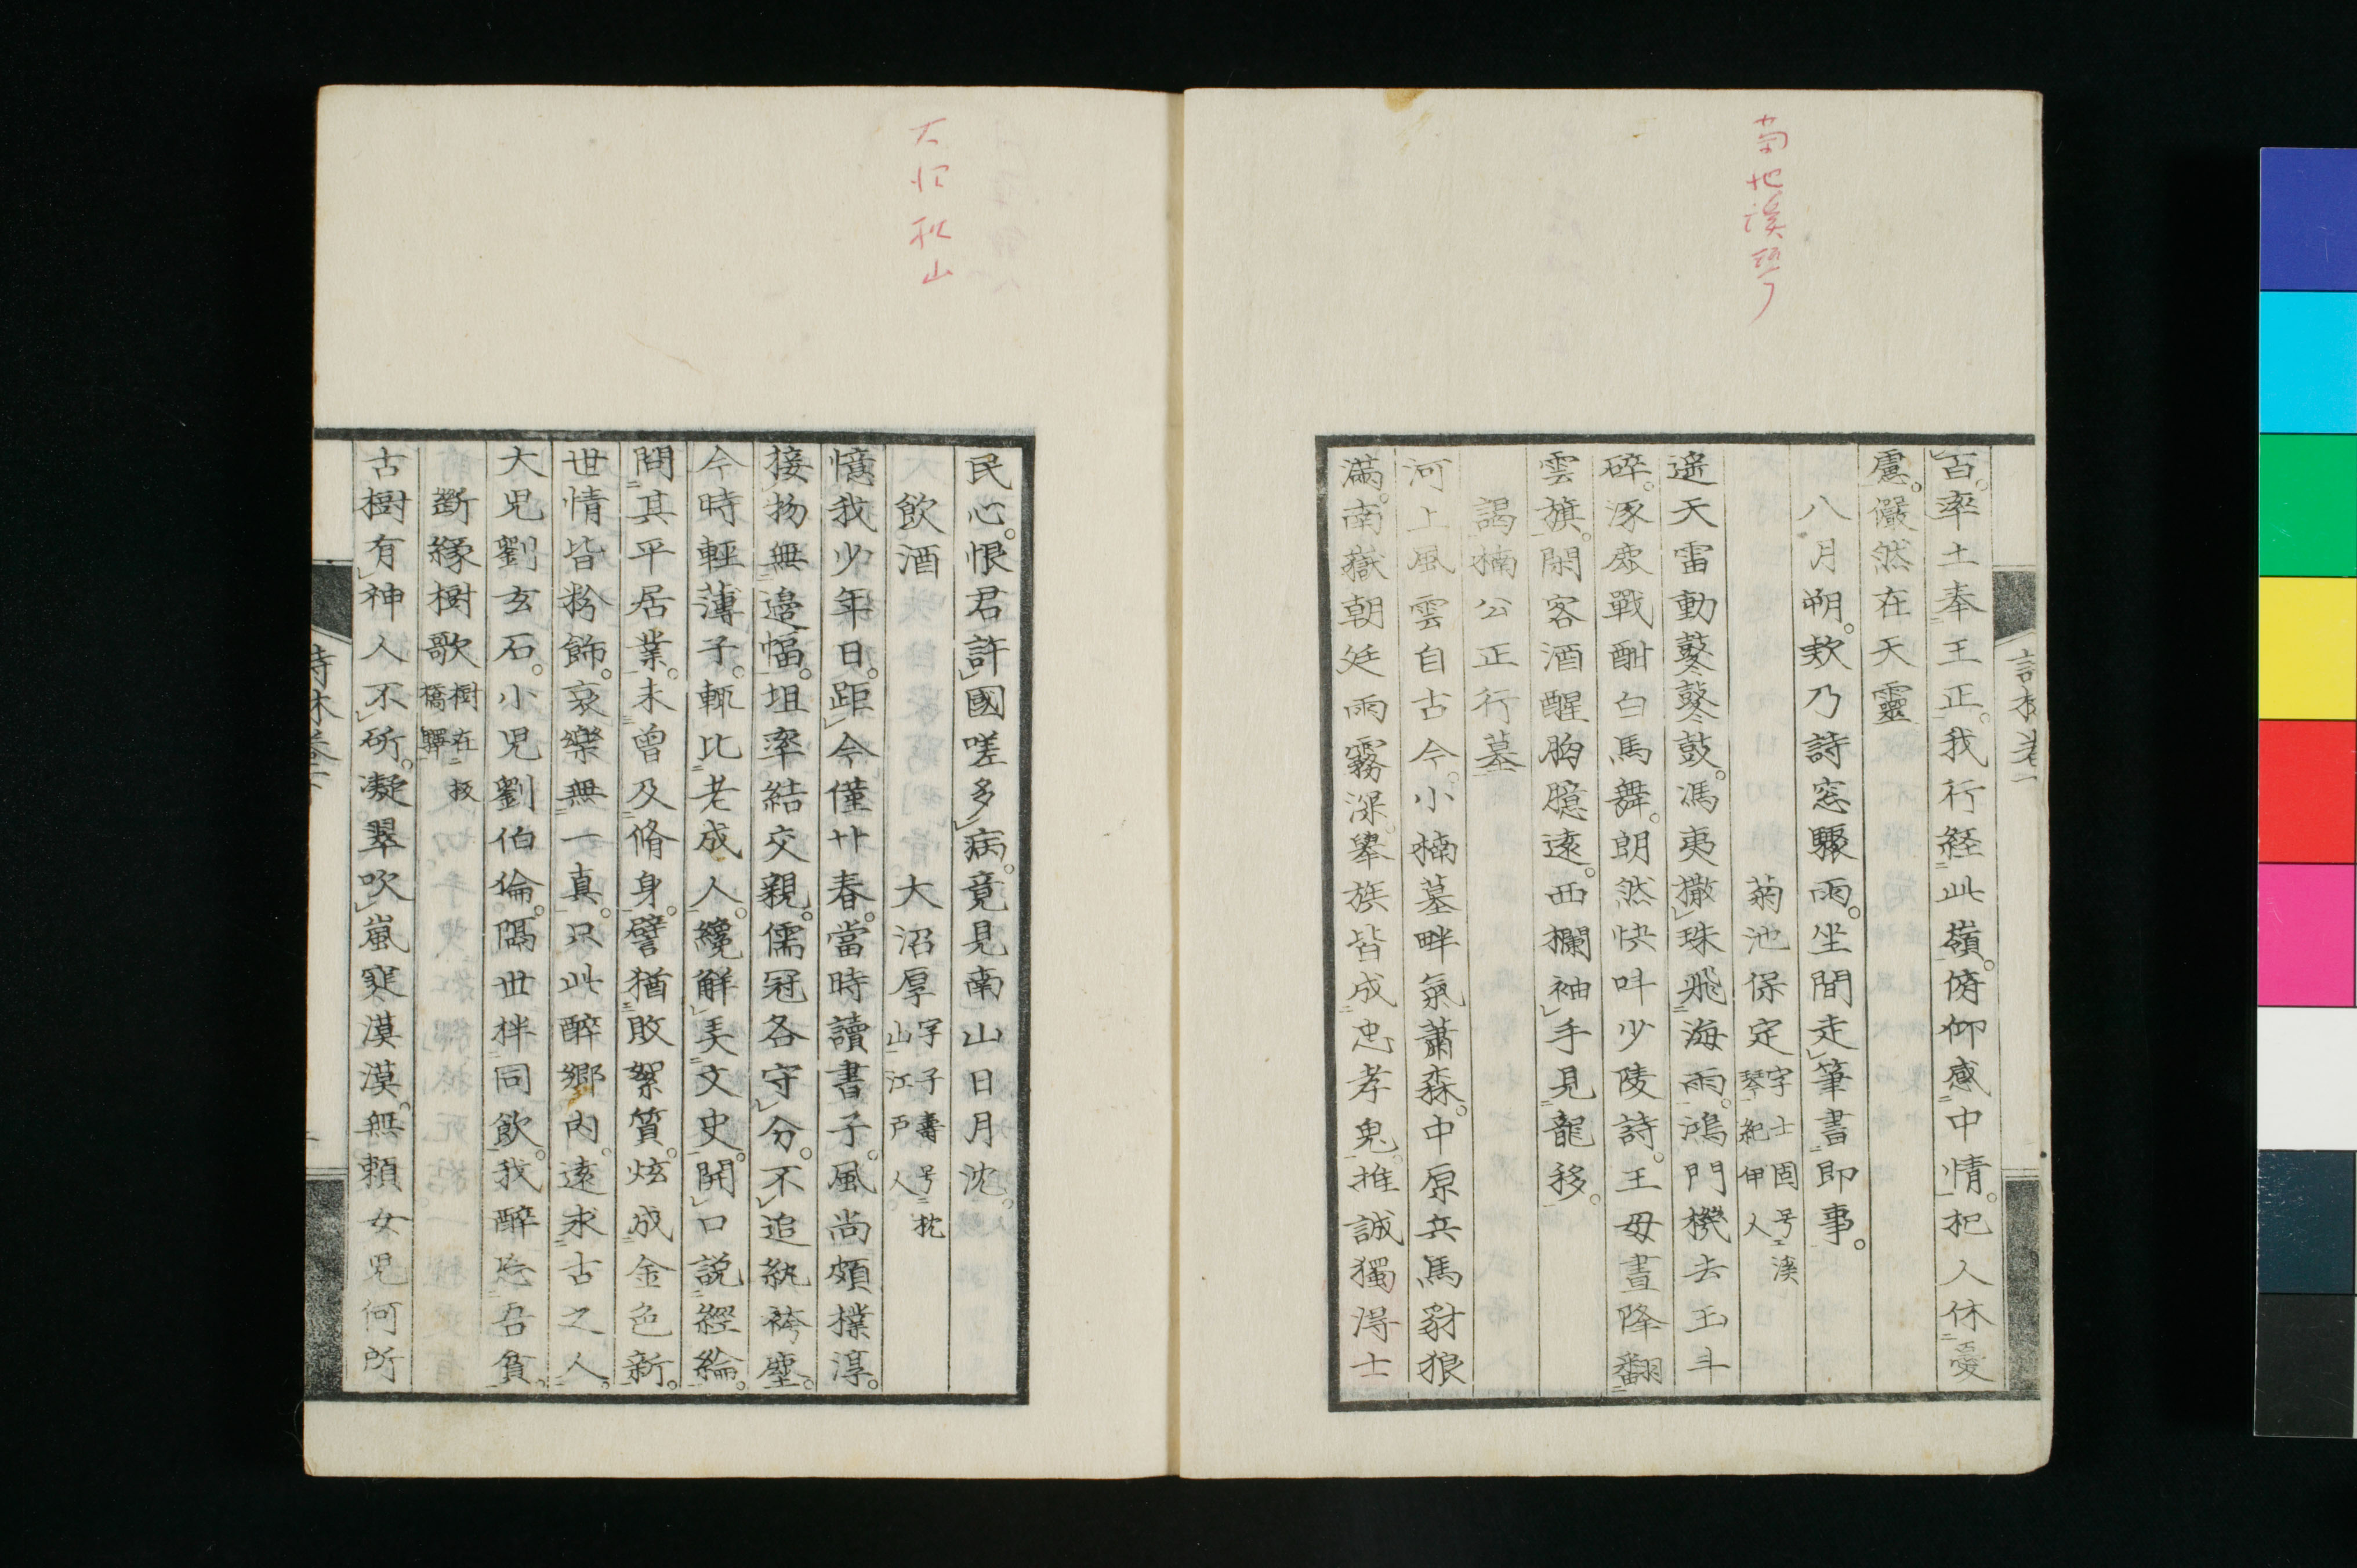 菊地溪琴
百。率土奉王正。我行経此嶺。俯仰感中情。杞人休憂
慮。儼然在天靈
八月朔。欸乃詩窓驟雨。坐間走筆書即事。
菊池保定字士固号溪琴紀伊人
遥天雷動鼕鼕鼓。馮夷撒珠飛海雨。鴻門機去玉斗
碎。涿鹿戰酣白馬舞。朗然快叫少陵詩。王母晝降翻
雲旗。閑客酒醒胸臆遠。西欄袖手見龍移。
謁楠公正行墓
河上風雲自古今。小楠墓畔氣蕭森。中原兵馬豺狼
滿。南嶽朝廷雨霧深。舉族皆成忠孝鬼。推誠獨得士
大沼枕山
民心。恨君許國嗟多病。竟見南山日月沈。
飲酒 大沼厚字子壽号枕山江戸人
憶我少年日。距今僅廿春。當時讀書子。風尚頗樸淳。
接物無邉幅。坦率結交親。儒冠各守分。不追紈袴塵。
今時輕薄子。輒比老成人。纔觧美文史。開口説經綸。
問其平居業。未曾及脩身。譬猶敗絮質。炫成金色新。
世情皆粉飾。哀樂無一真。只此醉鄉内。遠求古之人。
大兒劉玄石。小兒劉伯倫。隔世拌同飲。我醉忘吾貧。
斷縁樹歌樹在板橋驛
古樹有神人不斫。凝翠吹嵐寔漠漠。無頼女兒何所